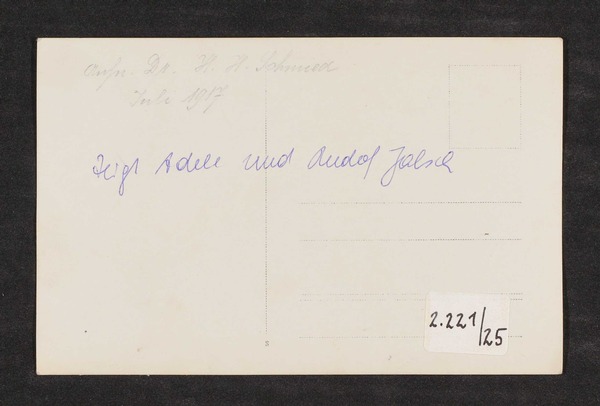 Aufn. Dr. H. H. Schmied
Juli 1917
zeigt Adele und Rudolf Jalsch
2.221/25